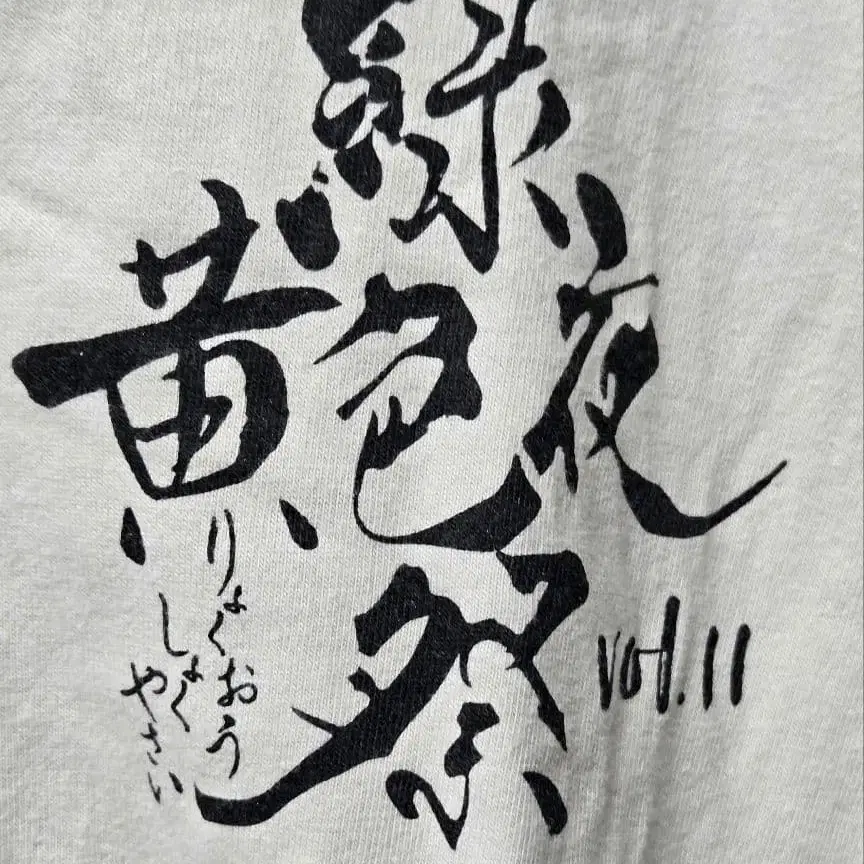 緑
黄色夜
祭
りょくおう
しょく
やさい
vol.11